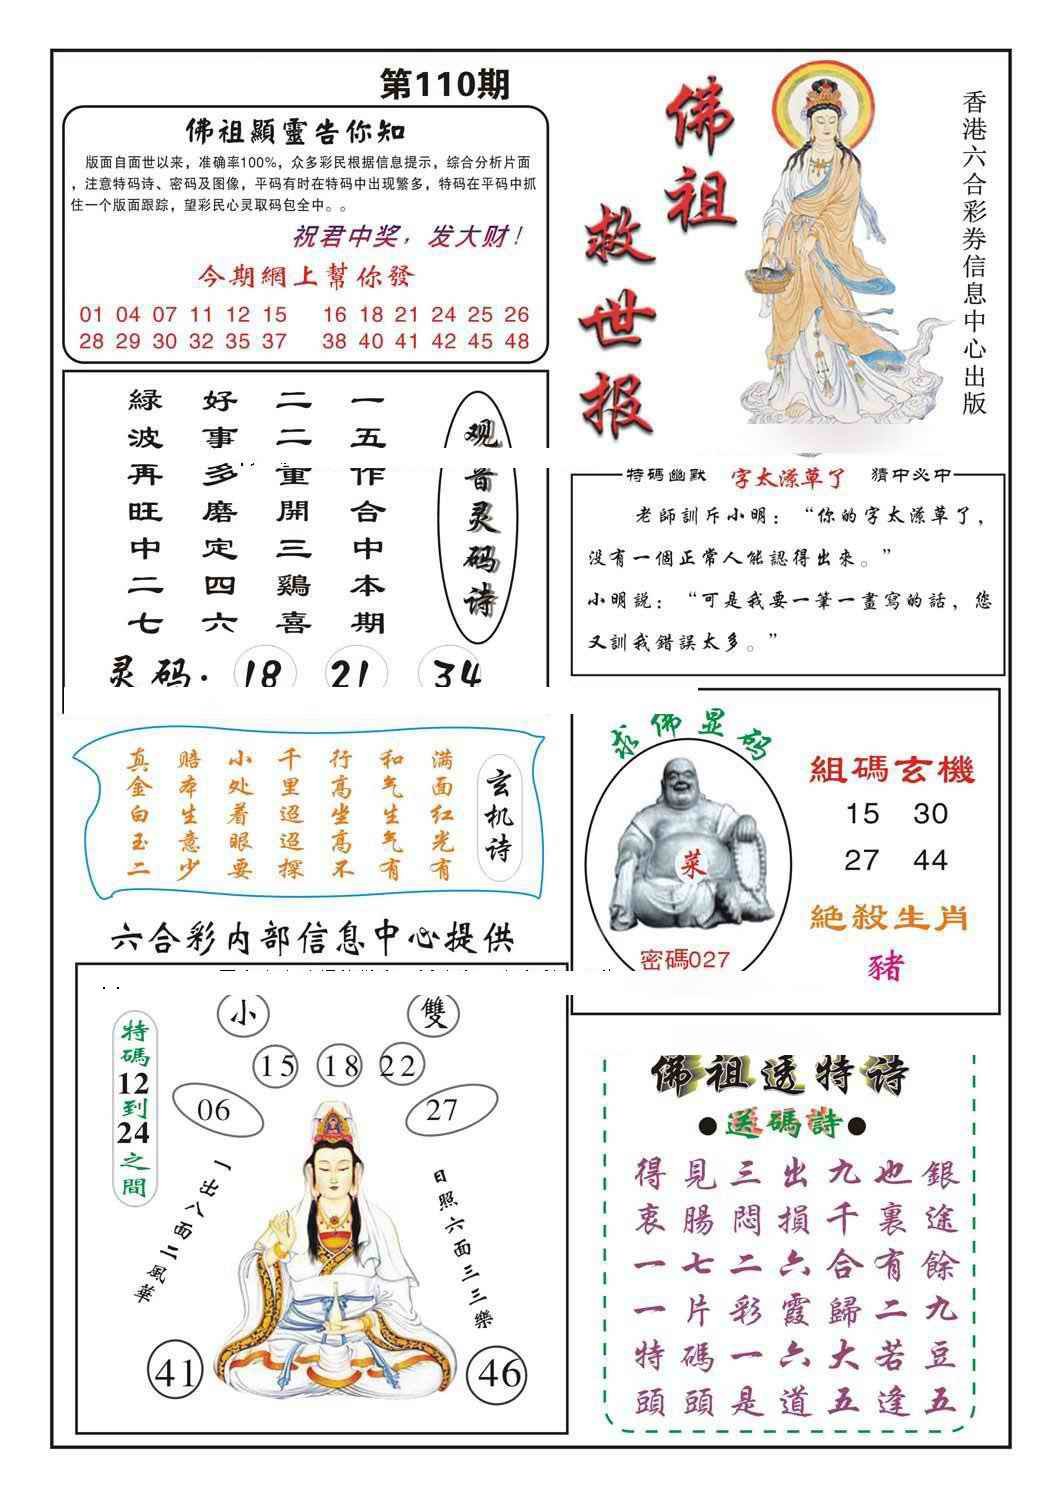 第110期
佛祖顯靈告你知
版面自面世以来，准确率100%，众多彩民根据信息提示，综合分析片面
，注意特码诗、密码及图像，平码有时在特码中出现繁多，特码在平码中抓
住一个版面跟踪，望彩民心灵取码包全中。。
祝君中奖，发大财！
今期網上幫你發
01 04 07 11 12 15 16 18 21 24 25 26
28 29 30 32 35 37 38 40 41 42 45 48
佛祖
救世报
香港六合彩券信息中心出版
观音灵码诗
一五作合中本期
二二重開三鷄喜
好事多磨定四六
緑波再旺中二七
灵码. 18 21 34
特碼幽默 字太潦草了 猜中必中
老師訓斥小明：“你的字太潦草了，
没有一個正常人能認得出來。”
小明説：“可是我要一筆一畫寫的話，您
又訓我錯誤太多。”
玄机诗
满面红光有
和气生气有
行高坐高不
千里迢迢探
小处着眼要
赔本生意少
真金白玉二
六合彩内部信息中心提供
求佛显码
菜
密碼027
組碼玄機
15 30
27 44
絶殺生肖
豬
小 雙
15 18 22
06 27
特碼12到24之間
一出八面二風華
日照六面三三樂
41 46
佛祖透特诗
●送碼詩●
得見三出九也銀
衷腸悶損千裏途
一七二六合有餘
一片彩霞歸二九
特碼一六大若豆
頭頭是道五逢五